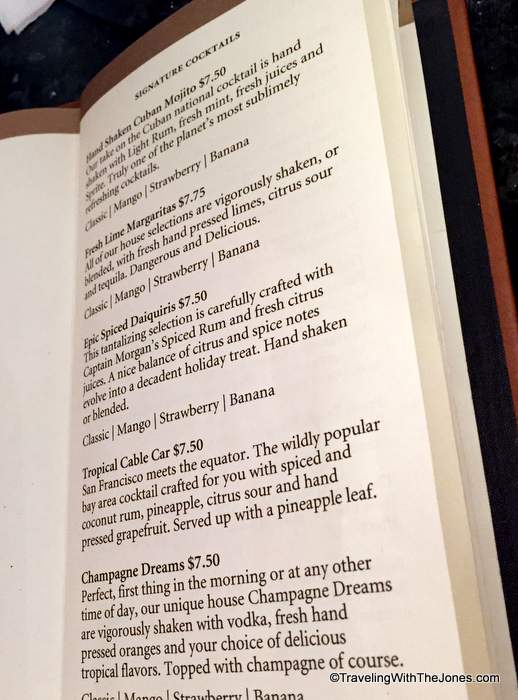 SIGNATURE COCKTAILS
Hand Shaken Cuban Mojito $7.50
Our take on the Cuban national cocktail is hand
shaken with Light Rum, fresh mint, fresh juices and
Sprite. Truly one of the planet's most sublimely
refreshing cocktails.
Classic | Mango | Strawberry | Banana
Fresh Lime Margaritas $7.75
All of our house selections are vigorously shaken, or
blended, with fresh hand pressed limes, citrus sour
and tequila. Dangerous and Delicious.
Classic | Mango | Strawberry | Banana
Epic Spiced Daiquiris $7.50
This tantalizing selection is carefully crafted with
Captain Morgan's Spiced Rum and fresh citrus
juices. A nice balance of citrus and spice notes
evolve into a decadent holiday treat. Hand shaken
or blended.
Classic | Mango | Strawberry | Banana
Tropical Cable Car $7.50
San Francisco meets the equator. The wildly popular
bay area cocktail crafted for you with spiced and
coconut rum, pineapple, citrus sour and hand
pressed grapefruit. Served up with a pineapple leaf.
Champagne Dreams $7.50
Perfect, first thing in the morning or at any other
time of day, our unique house Champagne Dreams
are vigorously shaken with vodka, fresh hand
pressed oranges and your choice of delicious
tropical flavors. Topped with champagne of course.
Classic | Mango | Strawberry | Banana
©TravelingWithTheJones.com